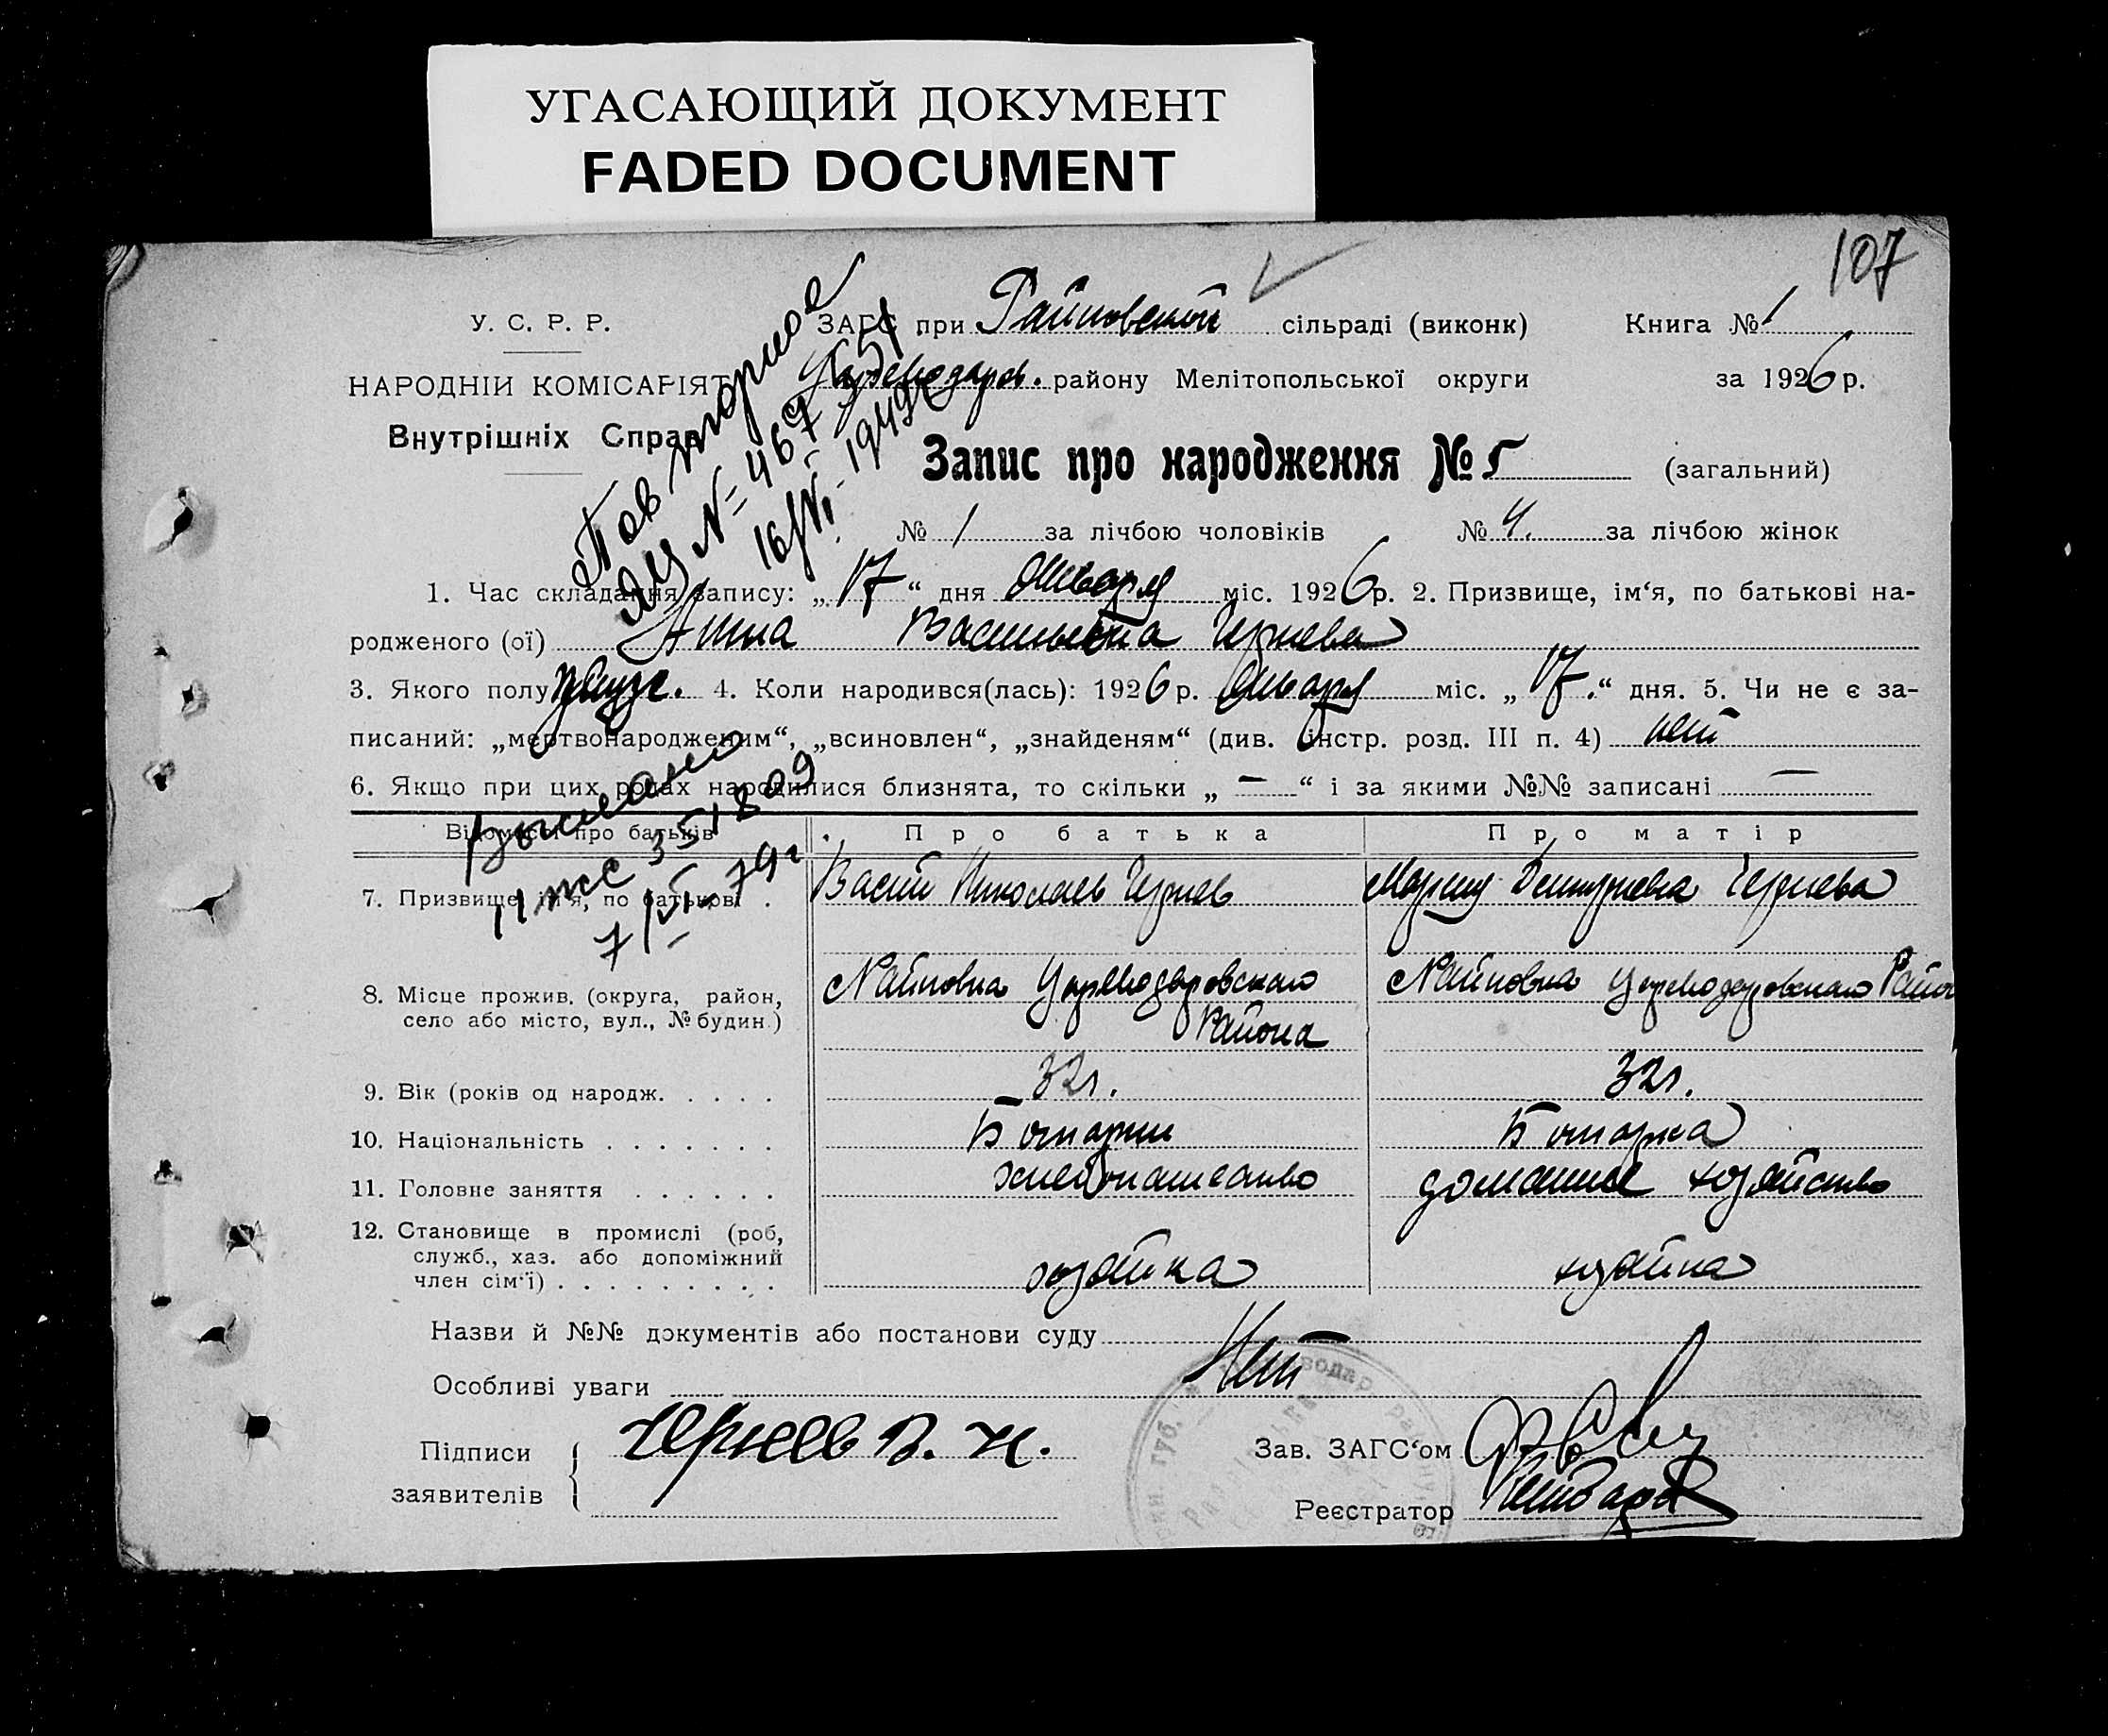 УГАСАЮЩИЙ ДОКУМЕНТ
FADED DOCUMENT
107
У. С. Р. Р.
ЗАГС при Райновской сільраді (виконк) Книга № 1
НАРОДНІЙ КОМІСАРІЯТ
району Мелітопольської округи за 1926 р.
Внутрішніх Справ
Запис про народження № 5 (загальний)
№ 1 за лічбою чоловіків № 4. за лічбою жінок
Повторное
№ 467
1949
1. Час складання запису: „17“ дня Января міс. 1926 р. 2. Призвище, ім‘я, по батькові на-
родженого (ої) Анна Васильевна Чернева
3. Якого полу женск. 4. Коли народився(лась): 1926 р. Января міс. „17.“ дня. 5. Чи не є за-
писаний: „мертвонародженим“, „всиновлен“, „знайденям“ (див. інстр. розд. III п. 4) нет
6. Якщо при цих родах народилися близнята, то скільки „—“ і за якими №№ записані —
Выслано
351809
79г
Відомості про батьків Про батька Про матір
7. Призвище, ім‘я, по батькові . Василий Николаев Чернев Мария Дмитриевна Чернева
8. Місце прожив. (округа, район, Райновка Цареводаровскаго Райновка Цареводаровскаго Район
село або місто, вул., № будин.) Района
9. Вік (років од народж. . . . . 32 г. 32 г.
10. Національність . . . . . . . Болгарин Болгарка
11. Головне заняття . . . . . . хлебопашество домашнее хозяйство
12. Становище в промислі (роб,
служб., хаз. або допоміжний
член сім‘ї) . . . . . . . . . хозяйка хозяйка
Назви й №№ документів або постанови суду
Особливі уваги Нет
Підписи Чернев В. Н. Зав. ЗАГС‘ом
заявителів
Реєстратор